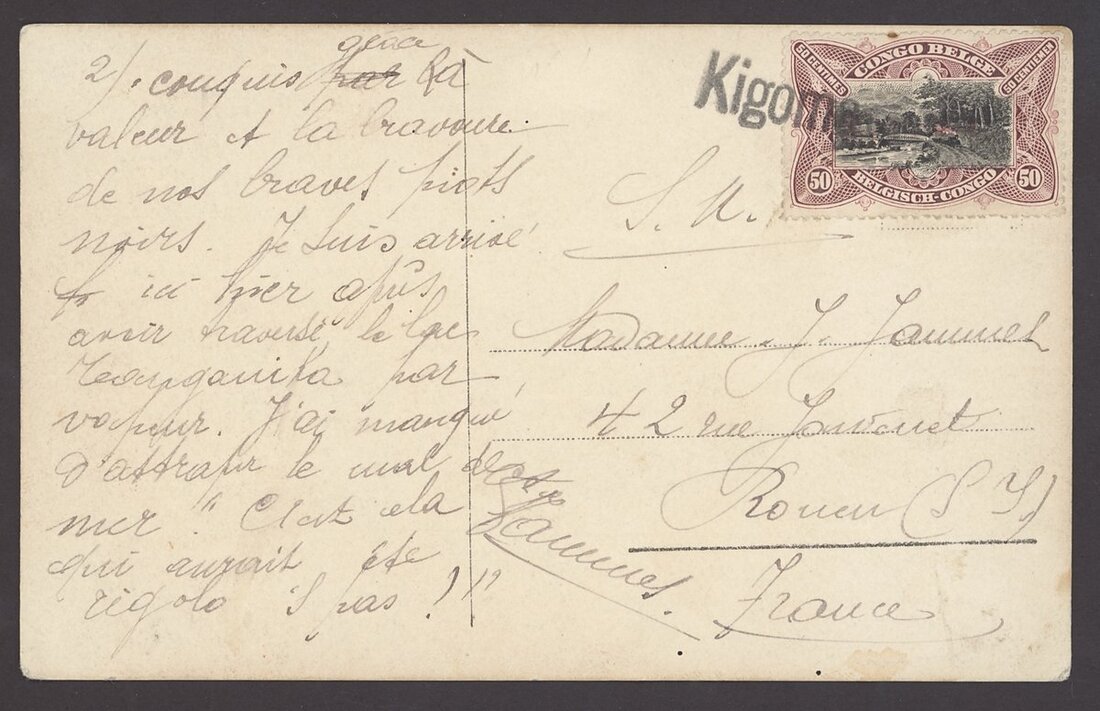 2/. conquis par grâce à la
valeur et la bravoure
de nos braves piots
noirs. Je suis arrivé
ici hier après
avoir traversé le lac
Tanganika par
vapeur. J'ai manqué
d'attraper le mal de
mer " C'est cela
qui aurait été
rigolo 's pas ! "
Jammes.
Kigoma
CONGO BELGE
50 CENTIMES
50 CENTIEMEN
50
50
BELGISCH-CONGO
S. M.
Madame J. Jammes
42 rue Jouvenet
Rouen (S I)
France